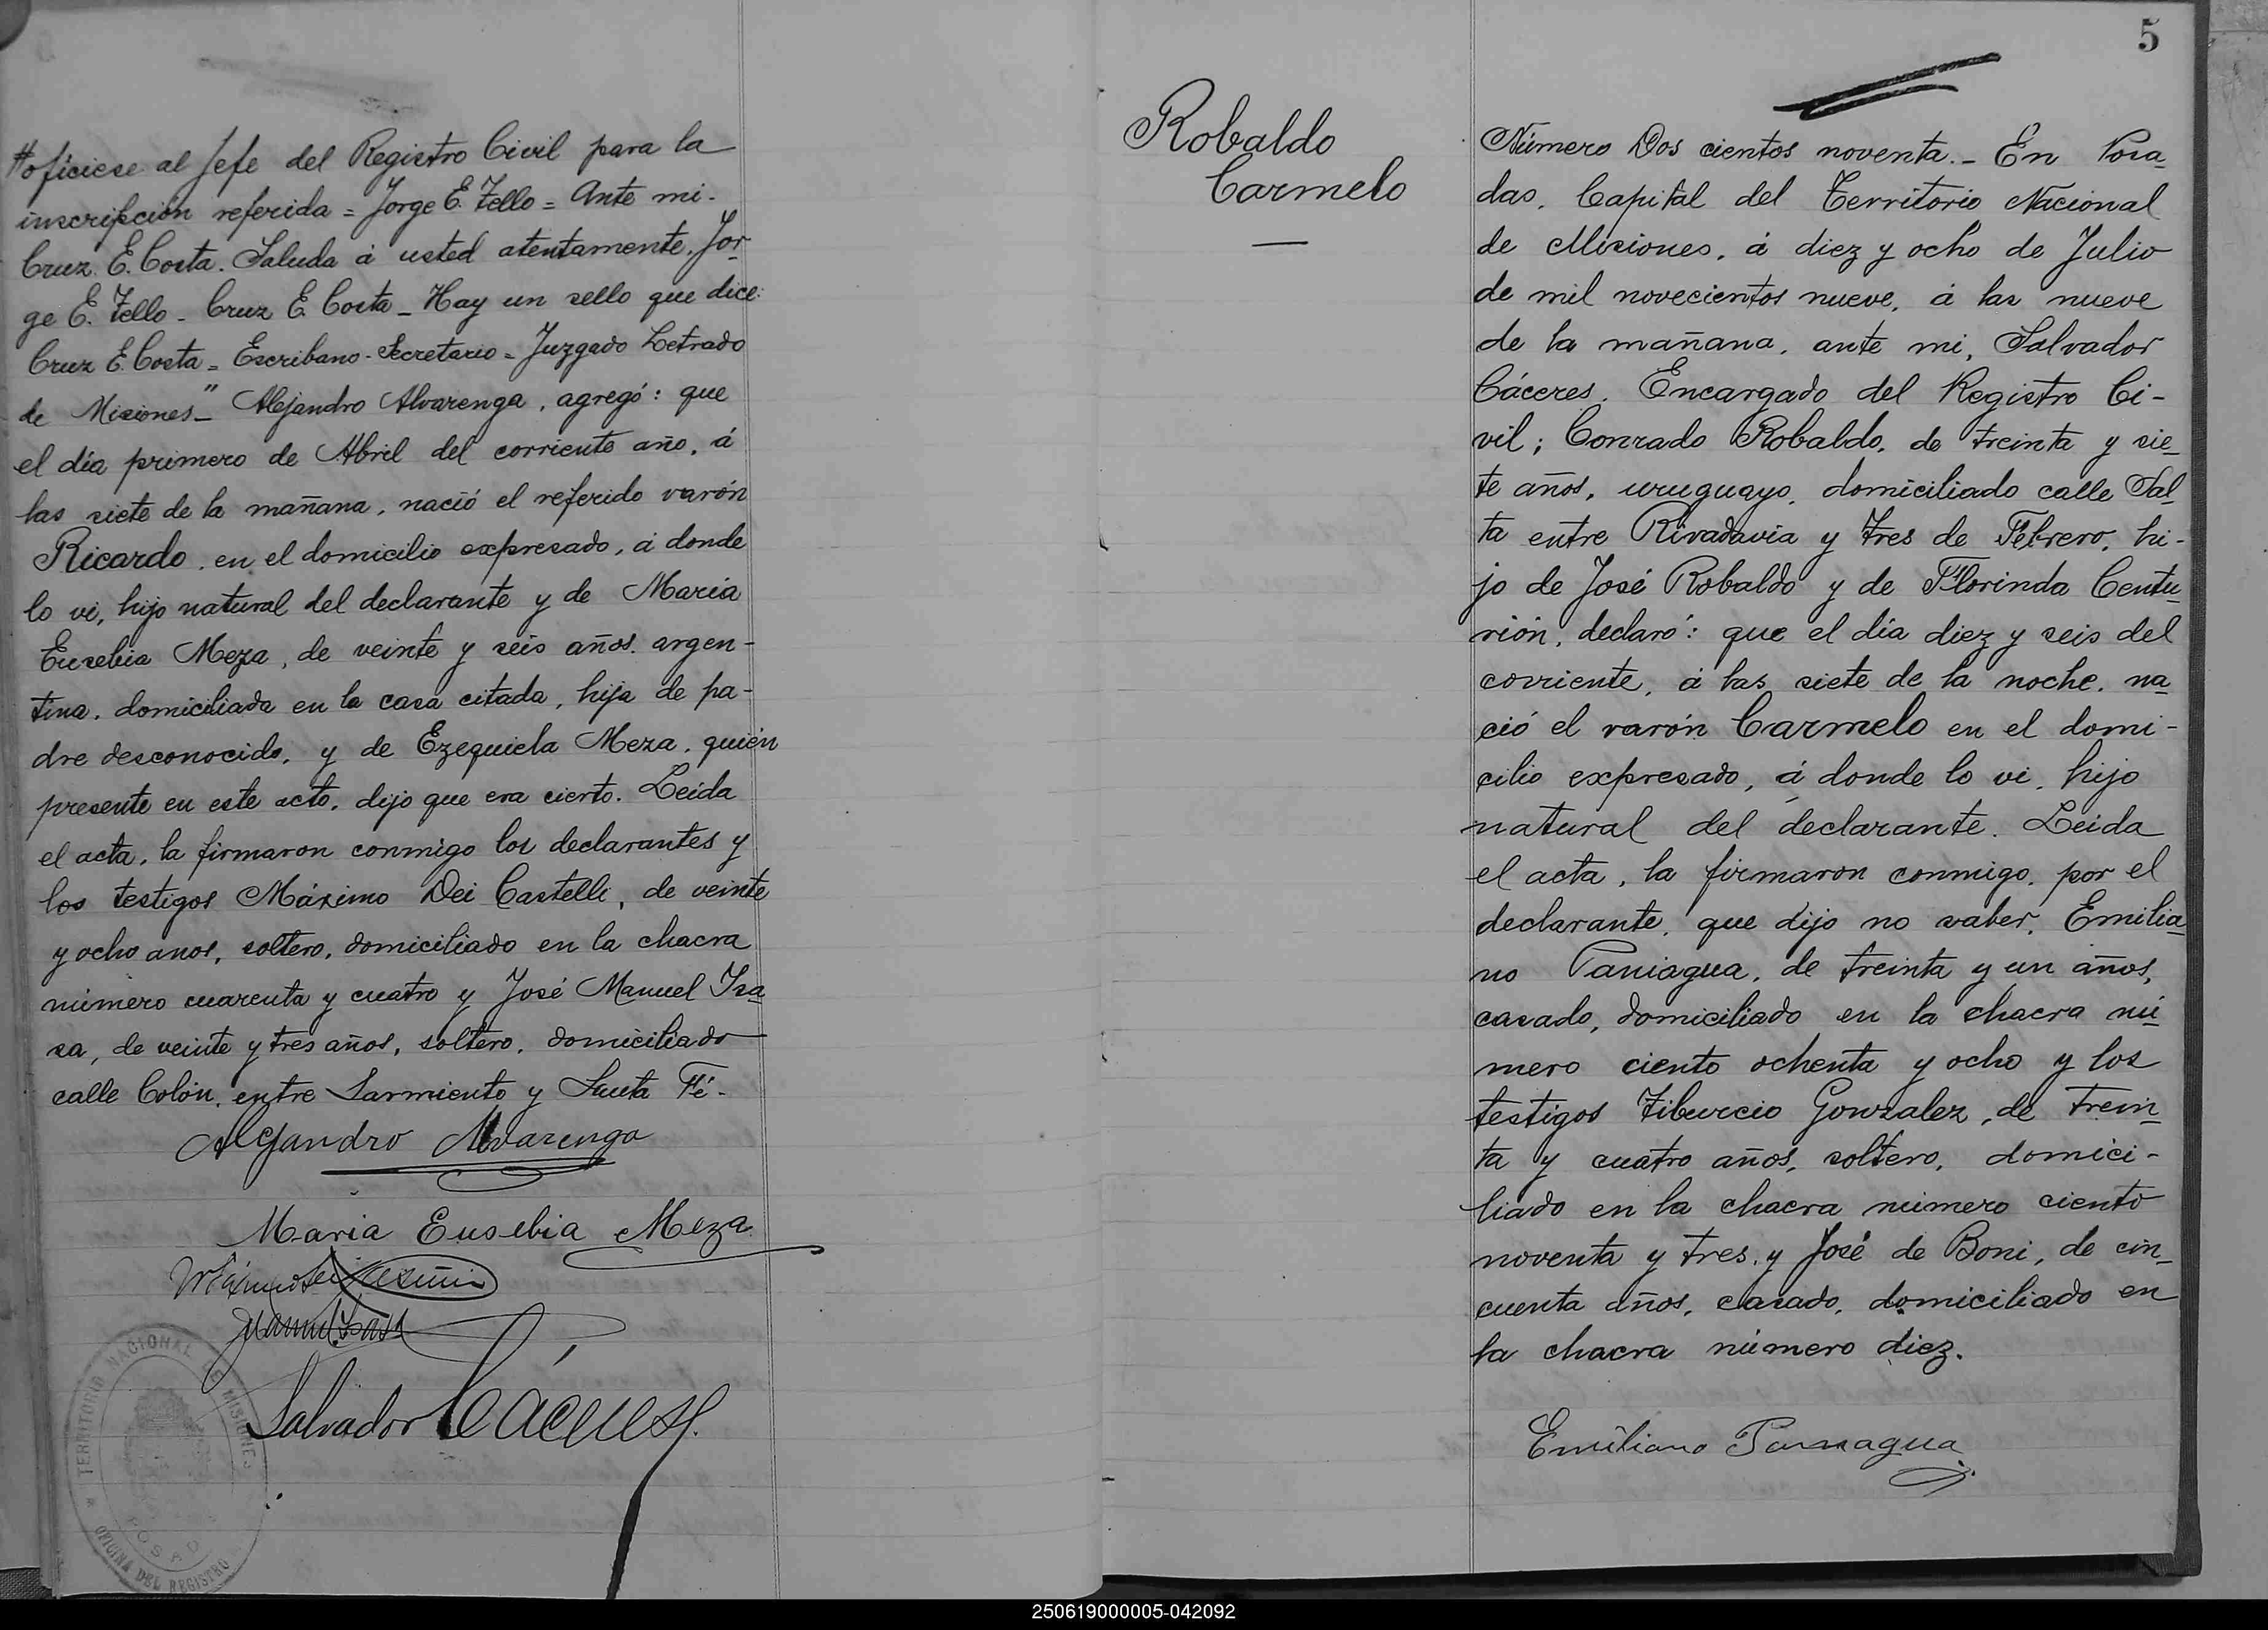 oficiese al Jefe del Registro Civil para la
inscripción referida = Jorge E. Tello = Ante mi.
Cruz E. Costa. Saluda á usted atentamente. Jor-
ge E. Tello - Cruz E. Costa - Hay un sello que dice:
Cruz E. Costa = Escribano-Secretario = Juzgado Letrado
de Misiones" - Alejandro Alvarenga, agregó: que
el día primero de Abril del corriente año, á
las siete de la mañana, nació el referido varón
Ricardo, en el domicilio expresado, á donde
lo vi, hijo natural del declarante y de Maria
Eusebia Meza, de veinte y seis años, argen-
tina, domiciliada en la casa citada, hija de pa-
dre desconocido, y de Ezequiela Meza, quién
presente en este acto, dijo que era cierto. Leida
el acta, la firmaron conmigo los declarantes y
los testigos Máximo Dei Castelli, de veinte
y ocho anos, soltero, domiciliado en la chacra
número cuarenta y cuatro y José Manuel Isa-
sa, de veinte y tres años, soltero, domiciliado
calle Colón, entre Sarmiento y Santa Fé.
Alejandro Alvarenga
Maria Eusebia Meza
Salvador Cáceres
TERRITORIO NACIONAL DE MISIONES
POSADAS
OFICINA DEL REGISTRO
5
Robaldo
Carmelo
Número Dos cientos noventa. - En Posa-
das, Capital del Territorio Nacional
de Misiones, á diez y ocho de Julio
de mil novecientos nueve, á las nueve
de la mañana, ante mi, Salvador
Cáceres, Encargado del Registro Ci-
vil; Conrado Robaldo, de treinta y sie-
te años, uruguayo, domiciliado calle Sal-
ta entre Rivadavia y Tres de Febrero, hi-
jo de José Robaldo y de Florinda Centu-
rión, declaró: que el día diez y seis del
corriente, á las siete de la noche, na-
ció el varón Carmelo en el domi-
cilio expresado, á donde lo vi, hijo
natural del declarante. Leida
el acta, la firmaron conmigo, por el
declarante, que dijo no saber, Emilia-
no Paniagua, de treinta y un años,
casado, domiciliado en la chacra nú-
mero ciento ochenta y ocho y los
testigos Tiburcio Gonzalez, de trein-
ta y cuatro años, soltero, domici-
liado en la chacra número ciento
noventa y tres, y José de Boni, de cin-
cuenta años, casado, domiciliado en
la chacra número diez.
Emiliano Paniagua
250619000005-042092